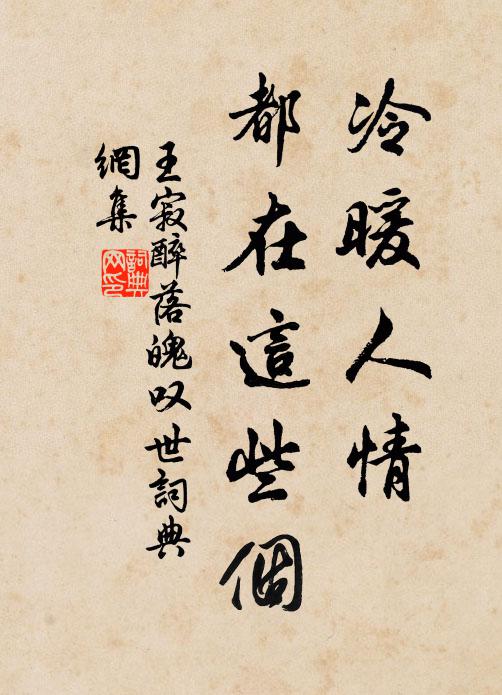 冷暖人情
都在這些個
王寂醉落魄叹世詞典
網集
詞典
网印